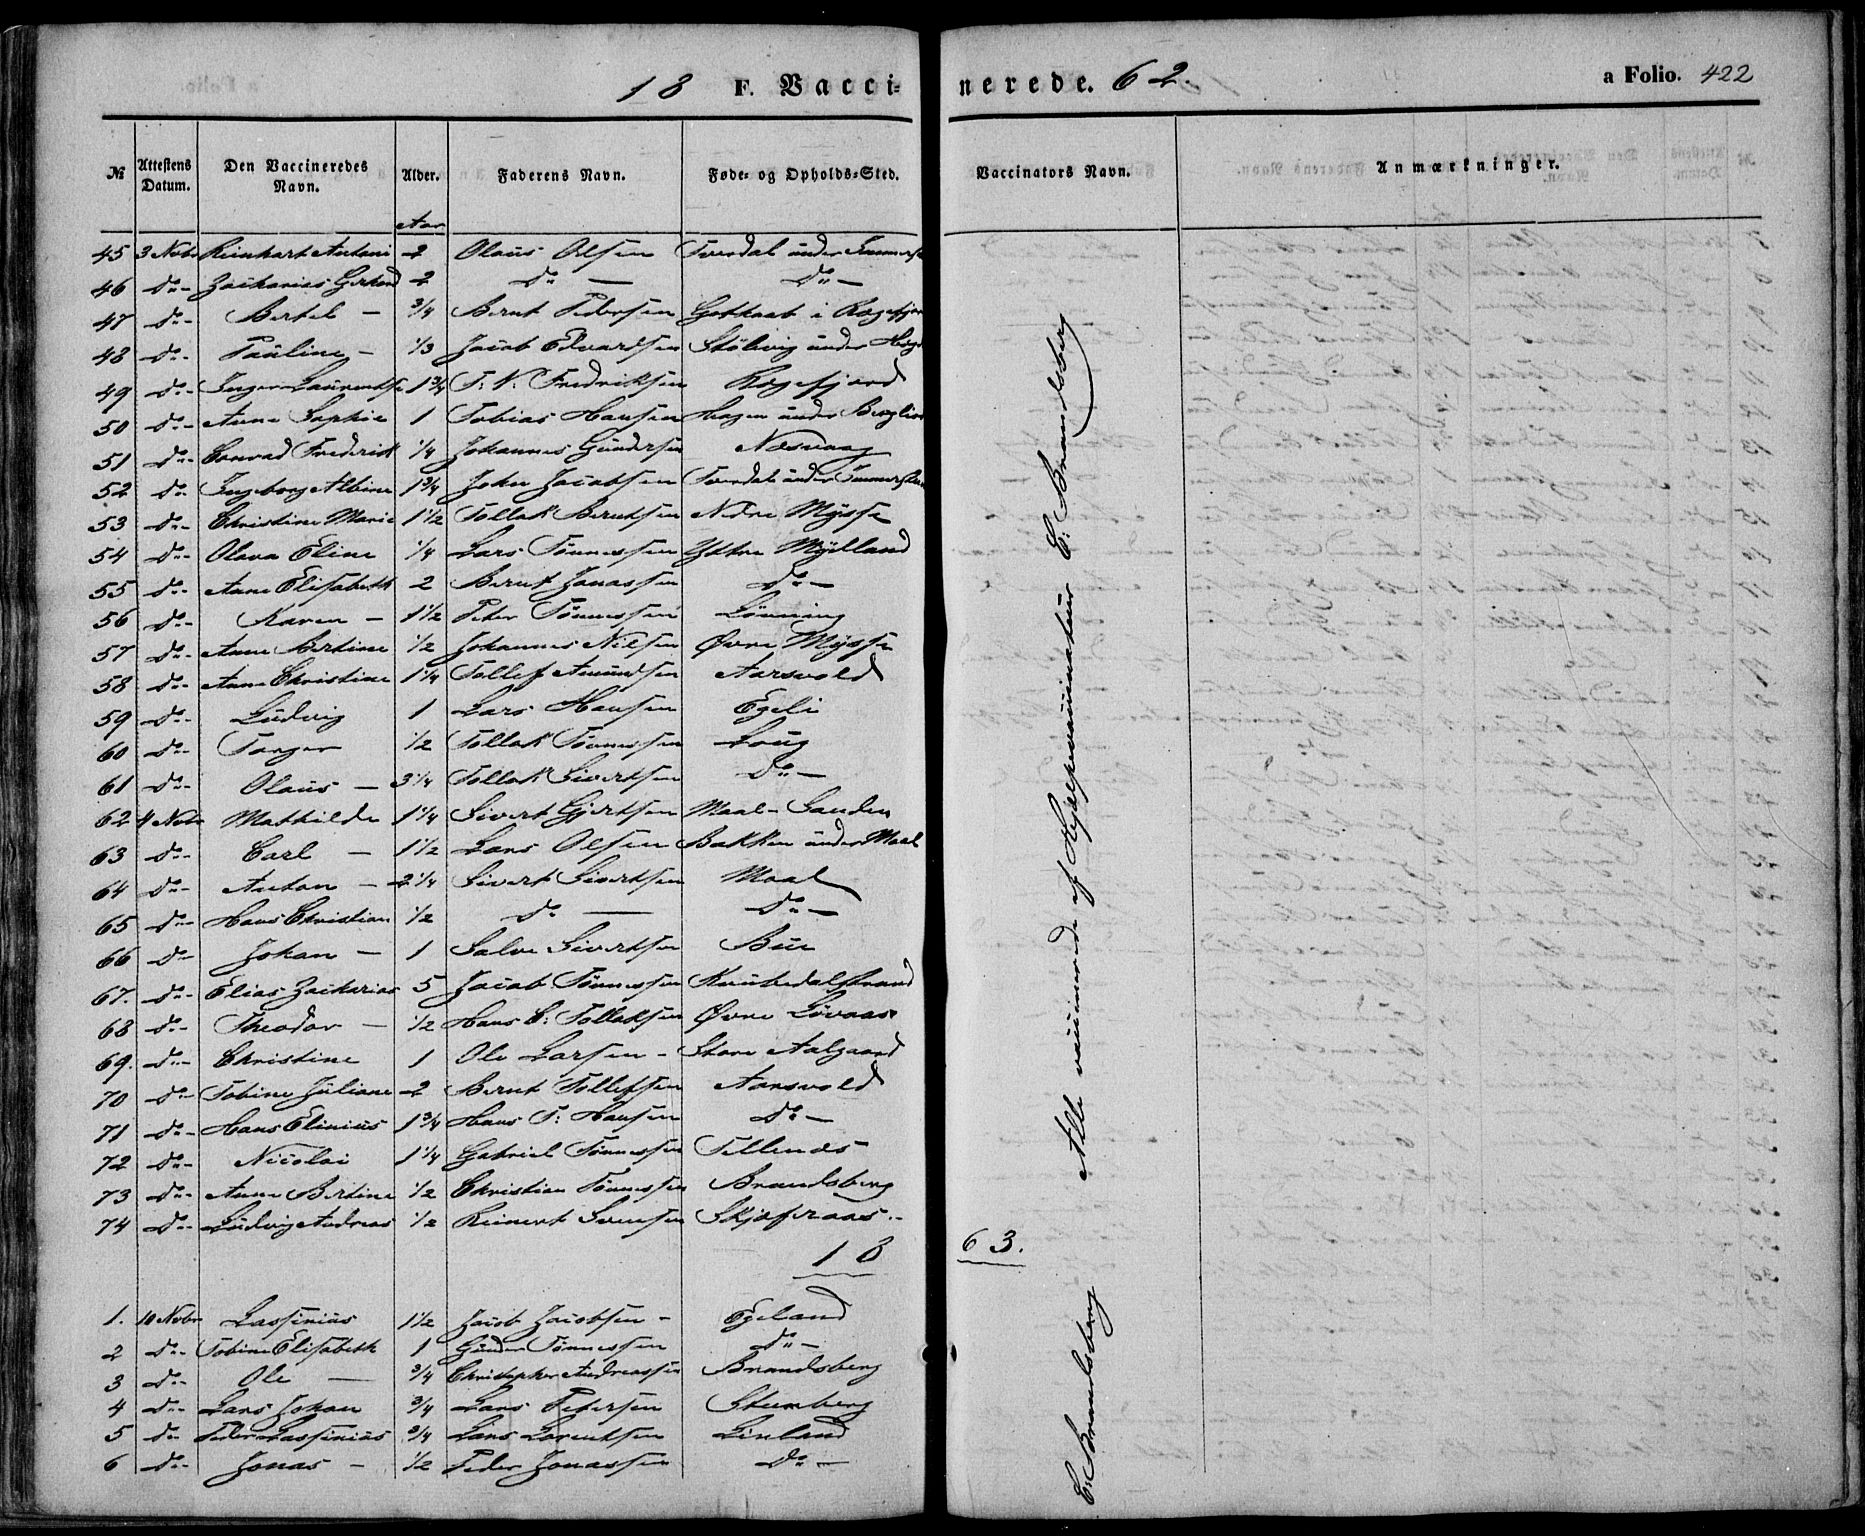 18 F. Vaccinerede. 62. a Folio. 422
№ Attestens Datum. Den Vaccineredes Navn. Alder. Faderens Navn. Føde- og Opholds-Sted. Vaccinators Navn. Anmærkninger.
Aar
45 3 Nobr Reinhart Antoni 2 Olaus Olsen Tverdal under
46 do- Zacharias Gerhard 2 do — do —
47 do- Bertel — 3/4 Bernt Pedersen i Rægefjord
48 do- Pauline — 1/3 Jacob Edvardsen Stölsvig under
49 do- Inger Laurentse 1 3/4 T: N: Fredriksen Rægefjord
50 do- Anne Sophie 1 Tobias Hansen Hagen under
51 do- Conrad Frederik 1/4 Johannes Gundersen Næsvaag
52 do Ingeborg Albine 1 3/4 John Jacobsen Tverdal under
53 do- Christine Marie 1 1/2 Tollak Berntsen Nedre Mysse
54 do- Olava Eline 1/4 Lars Tönnessen Yttre Mydland
55 do- Anne Elisabeth 2 Bernt Jonassen do —
56 do- Karen — 1 1/2 Peter Tönnessen Løvning
57 do- Anne Bertine 1/2 Johannes Nilsen Øvre Mysse
58 do- Anne Christine 1 1/4 Tollef Amundsen Aarsvold
59 do- Ludvig 1 Lars Hansen Egeli
60 do- Torger 1/2 Tollak Tönnessen Loug
61 do- Olaus — 3 1/4 Tollak Sivertsen do —
62 4 Nobr Mathilde 1 1/4 Sivert Gjertsen Maal-Sanden
63 do- Carl — 1 1/2 Lars Olsen Bakken under Maal
64 do- Anton — 2 1/4 Sivert Sivertsen Maal
65 do- Hans Christian 1/2 do — do —
66 do- Johan — 1 Salve Sivertsen Bue
67. do- Elias Zacharias 5 Jacob Tönnessen Knubedalstrand
68 do- Theodor — 1/2 Hans C: Tollaksen Øvre Løvaas
69. do- Christine 1 Ole Larsen - Store Aalgaard
70 do- Tobine Juliane 2 Bernt Tollefsen Aarsvold
71 do- Hans Elinius 1 3/4 Hans T: Hansen do —
72 do- Nicolai 1 1/4 Gabriel Tönnessen Tellenæs
73 do- Anne Bertine 1/2 Christian Tönnessen Brandsberg
74 do- Ludvig Andreas 1/2 Reinert Svensen Skjefraas.-
18 63.
1. 10 Nobr Lassinius 1 1/2 Jacob Jacobsen - Egeland
2 do- Tobine Elisabeth 1 Gunder Tönnessen do —
3 do- Ole — 3/4 Christopher Andreassen Brandsberg
4 do- Lars Johan 3/4 Lars Petersen Stumberg
5 do- Peder Lassinius 3/4 Lars Lorentsen Linland
6 do- Jonas — 1/2 Peder Jonassen do —
Alle vaccinerede af Hjælpevaccinateur C. Brandsberg
C. Brandsberg